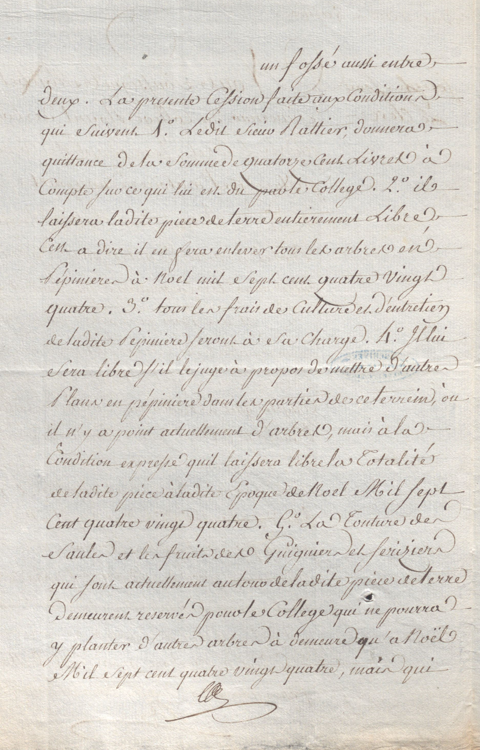 un fossé aussi entre
deux. La presente Cession faite aux Conditions
qui suivent 1.° Ledit Sieur Rattier, donnera
quittance de la Somme de quatorze Cent Livres à
Compte sur ce qui lui est du par le College. 2.° il
laissera ladite piece de terre entierement Libre
C'est a dire il en fera enlever tous les arbres en
Pépinieres à Noel mil sept cent quatre vingt
quatre. 3.° tous les frais de Culture et d'entretien
de ladite Pépiniere seront à sa Charge. 4.° Il lui
sera libre s'il le juge à propos de mettre d'autres
Plans en pépiniere dans les parties de ce terrein, où
il n'y a point actuellement d'arbres, mais à la
Condition expresse qu'il laissera libre la Totalité
de ladite piece à ladite Epoque de Noel Mil Sept
Cent quatre vingt quatre. 5.° La Tonture des
Saules et les fruits des Guigniers et Serisiers
qui sont actuellement autour de ladite piece de terre
demeurent reservés pour le College qui ne pourra
y planter d'autres arbres à demeure qu'a Noël
Mil Sept cent quatre vingt quatre, mais qui